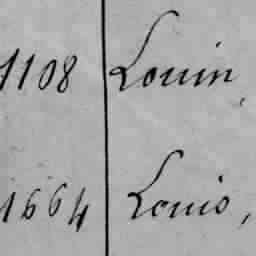 1108 Louin,
1664 Louis,